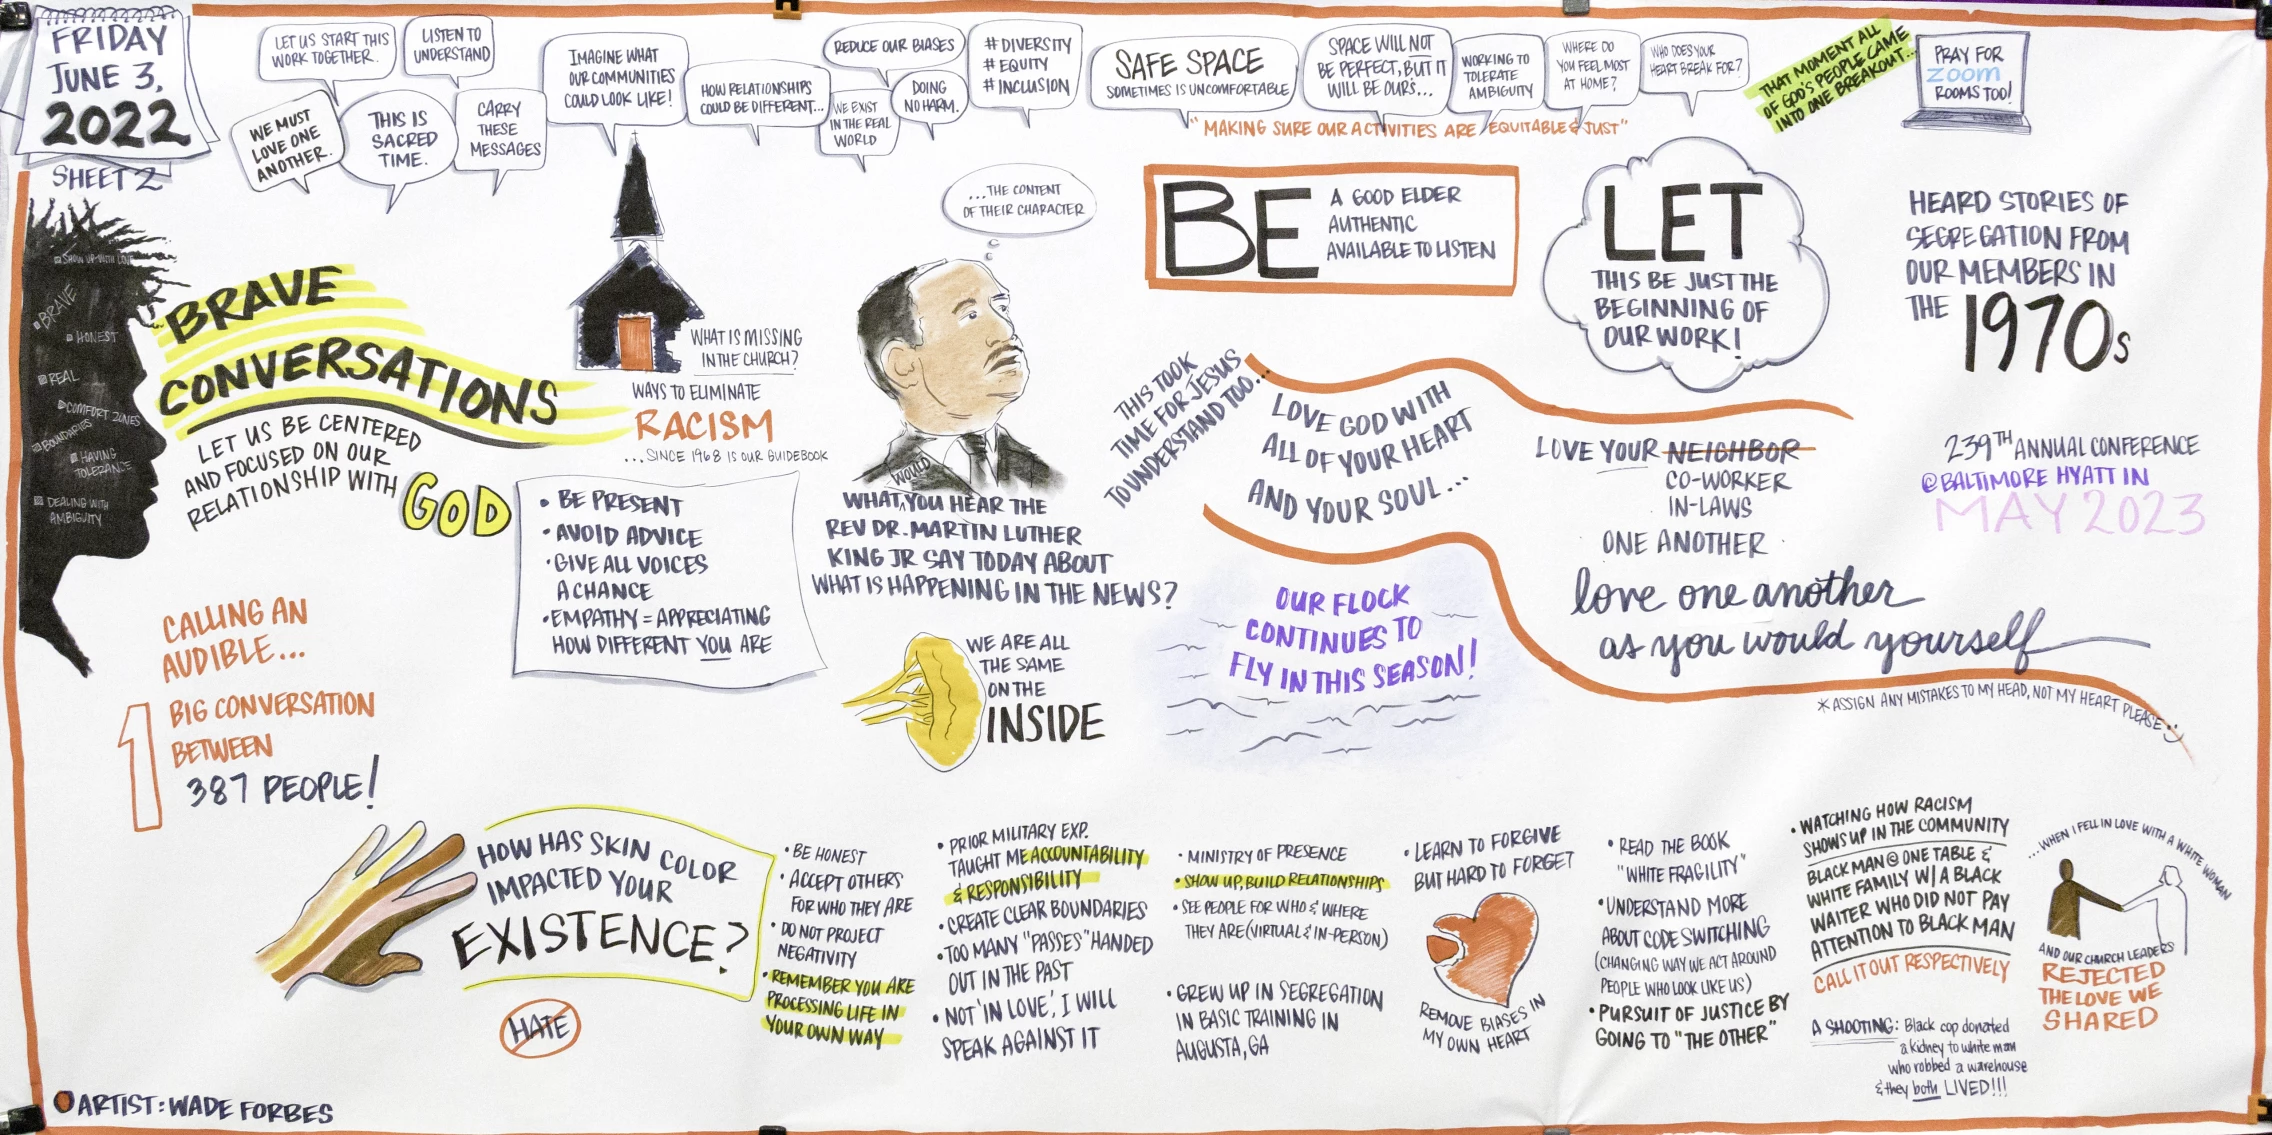 FRIDAY
JUNE 3,
2022
SHEET 2
LET US START THIS
WORK TOGETHER.
LISTEN TO
UNDERSTAND
WE MUST
LOVE ONE
ANOTHER.
THIS IS
SACRED
TIME.
CARRY
THESE
MESSAGES
IMAGINE WHAT
OUR COMMUNITIES
COULD LOOK LIKE!
HOW RELATIONSHIPS
COULD BE DIFFERENT...
REDUCE OUR BIASES
WE EXIST
IN THE REAL
WORLD
DOING
NO HARM.
#DIVERSITY
#EQUITY
#INCLUSION
SAFE SPACE
SOMETIMES IS UNCOMFORTABLE
SPACE WILL NOT
BE PERFECT, BUT IT
WILL BE OURS...
WORKING TO
TOLERATE
AMBIGUITY
WHERE DO
YOU FEEL MOST
AT HOME?
WHO DOES YOUR
HEART BREAK FOR?
"MAKING SURE OUR ACTIVITIES ARE EQUITABLE & JUST"
THAT MOMENT ALL
OF GOD'S PEOPLE CAME
INTO ONE BREAKOUT...
PRAY FOR
zoom
ROOMS TOO!
SHOW UP WITH LOVE
BRAVE
HONEST
REAL
COMFORT ZONES
BOUNDARIES
HAVING
TOLERANCE
DEALING WITH
AMBIGUITY
BRAVE
CONVERSATIONS
LET US BE CENTERED
AND FOCUSED ON OUR
RELATIONSHIP WITH
GOD
WHAT IS MISSING
IN THE CHURCH?
WAYS TO ELIMINATE
RACISM
...SINCE 1968 IS OUR GUIDEBOOK
• BE PRESENT
• AVOID ADVICE
• GIVE ALL VOICES
A CHANCE
• EMPATHY = APPRECIATING
HOW DIFFERENT YOU ARE
...THE CONTENT
OF THEIR CHARACTER
WOULD
WHAT, YOU HEAR THE
REV DR. MARTIN LUTHER
KING JR SAY TODAY ABOUT
WHAT IS HAPPENING IN THE NEWS?
BE
A GOOD ELDER
AUTHENTIC
AVAILABLE TO LISTEN
LET
THIS BE JUST THE
BEGINNING OF
OUR WORK!
HEARD STORIES OF
SEGREGATION FROM
OUR MEMBERS IN
THE 1970s
THIS TOOK
TIME FOR JESUS
TO UNDERSTAND TOO...
LOVE GOD WITH
ALL OF YOUR HEART
AND YOUR SOUL...
LOVE YOUR NEIGHBOR
CO-WORKER
IN-LAWS
ONE ANOTHER
love one another
as you would yourself
239TH ANNUAL CONFERENCE
@BALTIMORE HYATT IN
MAY 2023
*ASSIGN ANY MISTAKES TO MY HEAD, NOT MY HEART PLEASE :)
CALLING AN
AUDIBLE...
1 BIG CONVERSATION
BETWEEN
387 PEOPLE!
WE ARE ALL
THE SAME
ON THE
INSIDE
OUR FLOCK
CONTINUES TO
FLY IN THIS SEASON!
HOW HAS SKIN COLOR
IMPACTED YOUR
EXISTENCE?
HATE
• BE HONEST
• ACCEPT OTHERS
FOR WHO THEY ARE
• DO NOT PROJECT
NEGATIVITY
• REMEMBER YOU ARE
PROCESSING LIFE IN
YOUR OWN WAY
• PRIOR MILITARY EXP.
TAUGHT ME ACCOUNTABILITY
& RESPONSIBILITY
• CREATE CLEAR BOUNDARIES
• TOO MANY "PASSES" HANDED
OUT IN THE PAST
• NOT 'IN LOVE', I WILL
SPEAK AGAINST IT
• MINISTRY OF PRESENCE
• SHOW UP, BUILD RELATIONSHIPS
• SEE PEOPLE FOR WHO & WHERE
THEY ARE (VIRTUAL & IN-PERSON)
• GREW UP IN SEGREGATION
IN BASIC TRAINING IN
AUGUSTA, GA
• LEARN TO FORGIVE
BUT HARD TO FORGET
REMOVE BIASES IN
MY OWN HEART
• READ THE BOOK
"WHITE FRAGILITY"
• UNDERSTAND MORE
ABOUT CODE SWITCHING
(CHANGING WAY WE ACT AROUND
PEOPLE WHO LOOK LIKE US)
• PURSUIT OF JUSTICE BY
GOING TO "THE OTHER"
• WATCHING HOW RACISM
SHOWS UP IN THE COMMUNITY
BLACK MAN @ ONE TABLE &
WHITE FAMILY W/ A BLACK
WAITER WHO DID NOT PAY
ATTENTION TO BLACK MAN
CALL IT OUT RESPECTIVELY
A SHOOTING: Black cop donated
a kidney to white man
who robbed a warehouse
& they both LIVED!!!
...WHEN I FELL IN LOVE WITH A WHITE WOMAN
AND OUR CHURCH LEADERS
REJECTED
THE LOVE WE
SHARED
ARTIST: WADE FORBES